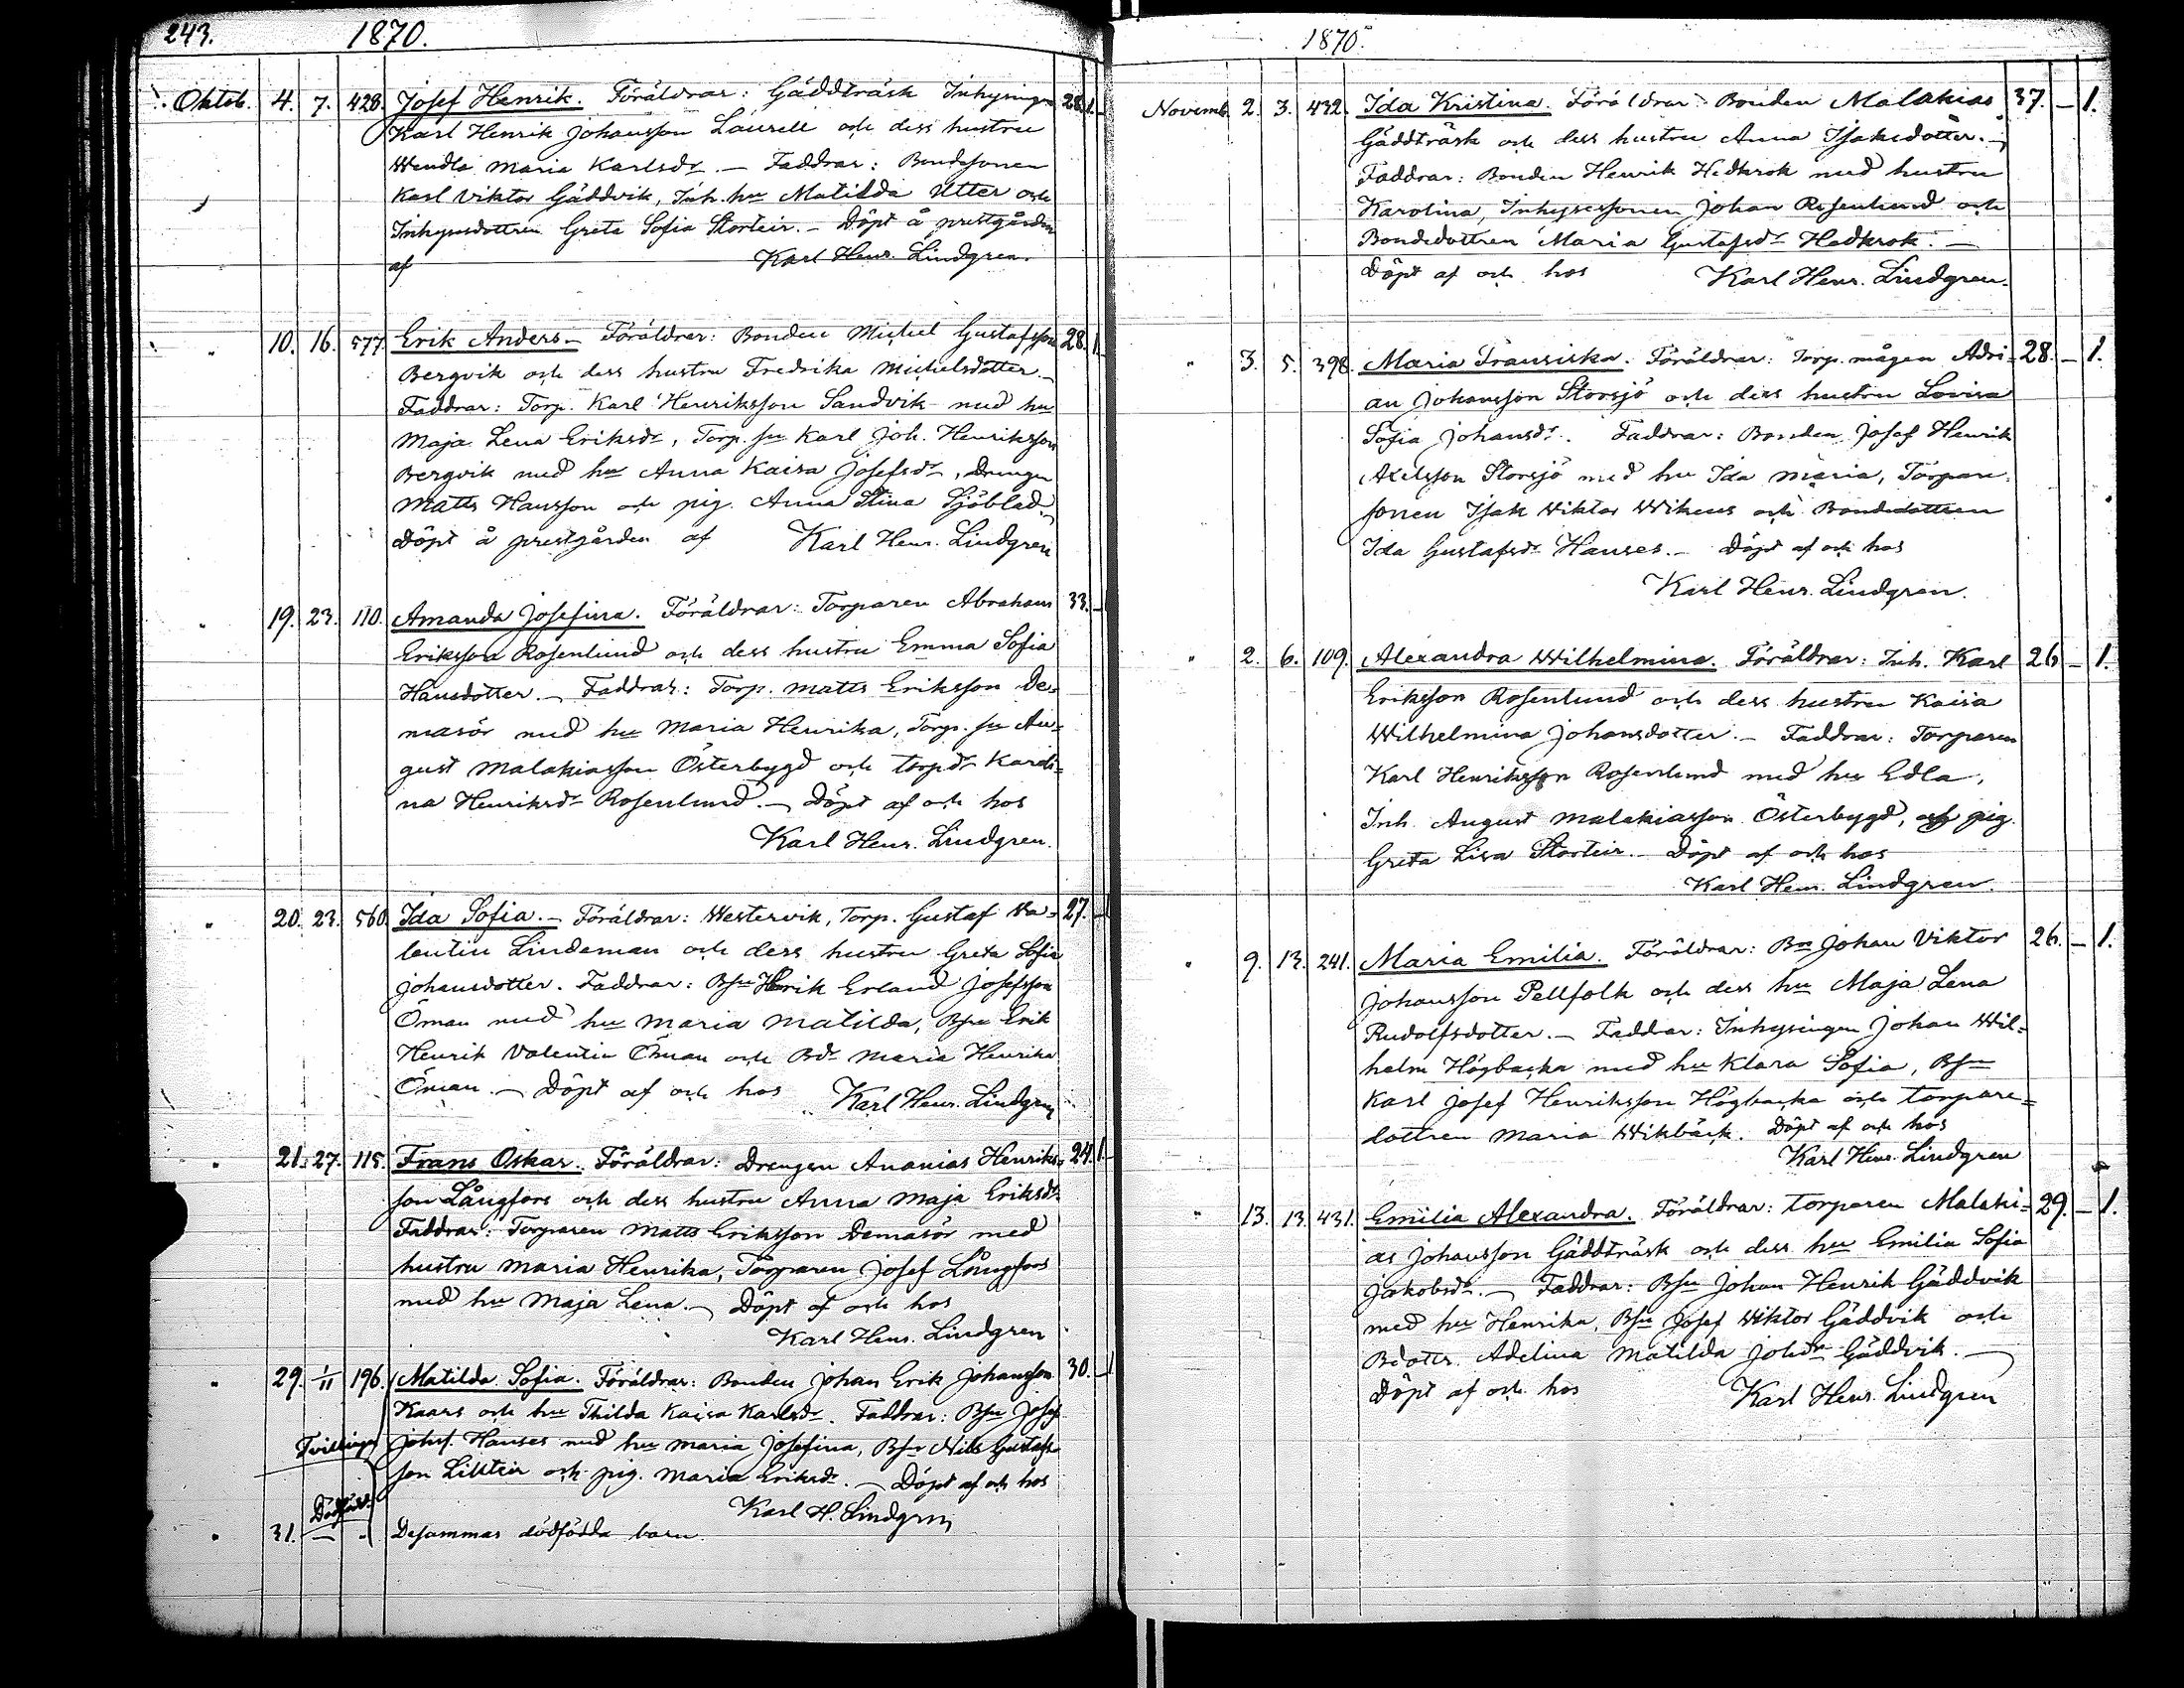 243. 1870.
Oktob. 4. 7. 428. Josef Henrik. Föräldrar: Gäddträsk Inhysingen 28. 1.
Karl Henrik Johansson Laurell och dess hustru
Wendla Maria Karlsdr. — Faddrar: Bondsonen
Karl Viktor Gäddvik, Inh. hu Matilda Utter och
Inhysesdottren Greta Sofia Storteir. — Döpt å prestgården
af Karl Henr. Lindgren.
" 10. 16. 577. Erik Anders — Föräldrar: Bonden Michel Gustafsson 28. 1.
Bergvik och dess hustru Fredrika Michelsdotter. —
Faddrar: Torp. Karl Henriksson Sandvik med hu
Maja Lena Eriksdr, Torp. sn Karl Joh. Henriksson
Bergvik med hu Anna Kaisa Josefsdr, Drengen
Matts Hansson och pig. Anna Stina Sjöblad. —
Döpt å prestgården af Karl Henr. Lindgren
" 19. 23. 110. Amanda Josefina. Föräldrar: Torparen Abraham 33. —
Eriksson Rosenlund och dess hustru Emma Sofia
Hansdotter. — Faddrar: Torp. Matts Eriksson De=
masör med hu Maria Henrika, Torp. sn Au=
gust Malakiasson Österbygd och torpdr Karoli=
na Henriksdr Rosenlund. — Döpt af och hos
Karl Henr. Lindgren.
" 20. 23. 560. Ida Sofia. — Föräldrar: Westervik, Torp. Gustaf Va= 27. —
lentin Lindeman och dess hustru Greta Sofia
Johansdotter. Faddrar: Bsn Henrik Erland Josefsson
Öman med hu Maria Matilda, Bsn Erik
Henrik Valentin Öman och Bdr Maria Henrika
Öman. — Döpt af och hos Karl Henr. Lindgren
" 21. 27. 115. Frans Oskar. Föräldrar: Drengen Ananias Henriks= 24. 1.
son Långfors och dess hustru Anna Maja Eriksdr
Faddrar: Torparen Matts Eriksson Demasör med
hustru Maria Henrika, Torparen Josef Långfors
med hu Maja Lena. — Döpt af och hos
Karl Henr. Lindgren
" 29. 1/11 196. Matilda Sofia. Föräldrar: Bonden Johan Erik Johansson 30. —
Kaars och hu Thilda Kaisa Karlsdr. Faddrar: Bsn Josef
Tvillingar Johns. Hanses med hu Maria Josefina, Bsn Nils Gustafs
son Lillteir och pig. Maria Eriksdr. — Döpt af och hos
Karl H. Lindgren
Dödfödd.
" 31. — " Desammas dödfödda barn.
1870.
Novemb. 2. 3. 432. Ida Kristina. Föräldrar: Bonden Malakias 37. — 1.
Gäddträsk och dess hustru Anna Isaksdotter. —
Faddrar: Bonden Henrik Hedkrok med hustru
Karolina, Inhysessonen Johan Rosenlund och
Bondedottren Maria Gustafsdr Hedkrok. —
Döpt af och hos Karl Henr. Lindgren.
" 3. 5. 398. Maria Fransiska. Föräldrar: Torp. mågen Adri= 28. — 1.
an Johansson Storsjö och dess hustru Lovisa
Sofia Johansdr. Faddrar: Bonden Josef Henrik
Axelsson Storsjö med hu Ida Maria, Torpare
sonen Isak Wiktor Wikens och Bondedottren
Ida Gustafsdr Hanses. — Döpt af och hos
Karl Henr. Lindgren.
" 2. 6. 109. Alexandra Wilhelmina. Föräldrar: Inh. Karl 26 — 1.
Eriksson Rosenlund och dess hustru Kaisa
Wilhelmina Johansdotter. — Faddrar: Torparen
Karl Henriksson Rosenlund med hu Edla,
Inh. August Malakiasson Österbygd, och pig.
Greta Lisa Storteir. — Döpt af och hos
Karl Henr. Lindgren.
" 9. 13. 241. Maria Emilia. Föräldrar: Bn Johan Viktor 26. — 1.
Johansson Pellfolk och dess hu Maja Lena
Rudolfsdotter. — Faddrar: Inhysingen Johan Wil=
helm Högbacka med hu Klara Sofia, Bsn
Karl Josef Henriksson Högbacka och torpare=
dottren Maria Wikbäck. Döpt af och hos
Karl Henr. Lindgren
" 13. 13. 431. Emilia Alexandra. Föräldrar: torparen Malaki= 29. — 1.
as Johansson Gäddträsk och dess hu Emilia Sofia
Jakobsdr. — Faddrar: Bsn Johan Henrik Gäddvik
med hu Henrika, Bsn Josef Wiktor Gäddvik och
Bdottr. Adelina Matilda Johsdr Gäddvik. —
Döpt af och hos Karl Henr. Lindgren